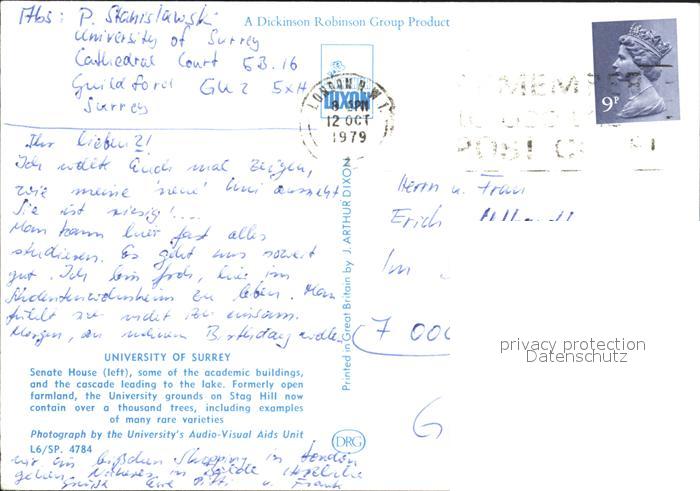 Abs: P. Stanislawski
University of Surrey
Cathedral Court 5B.16
Guildford GU2 5XH
Surrey
A Dickinson Robinson Group Product
DIXON
LONDON N.W.1
8 - PM
12 OCT
1979
REMEMBER
POST CODE
9P
Ihr Lieben 2!
Ich wollte Euch mal zeigen,
wie meine 'neue' Uni aussieht
Sie ist riesig!....
Man kann hier fast alles
studieren. Es geht uns soweit
gut. Ich bin froh, hier im
Studentenwohnheim zu leben. Man
fühlt sich nicht so einsam.
Morgen, an meinem Birthday wollen
wir ein bißchen Shopping in London
gehen. Näheres in Bälde. Herzliche
Grüße Eure u. Frank
Printed in Great Britain by J. ARTHUR DIXON
Herrn u. Frau
Erich
Im
7 000
G
UNIVERSITY OF SURREY
Senate House (left), some of the academic buildings,
and the cascade leading to the lake. Formerly open
farmland, the University grounds on Stag Hill now
contain over a thousand trees, including examples
of many rare varieties
Photograph by the University's Audio-Visual Aids Unit
L6/SP. 4784
DRG
privacy protection
Datenschutz